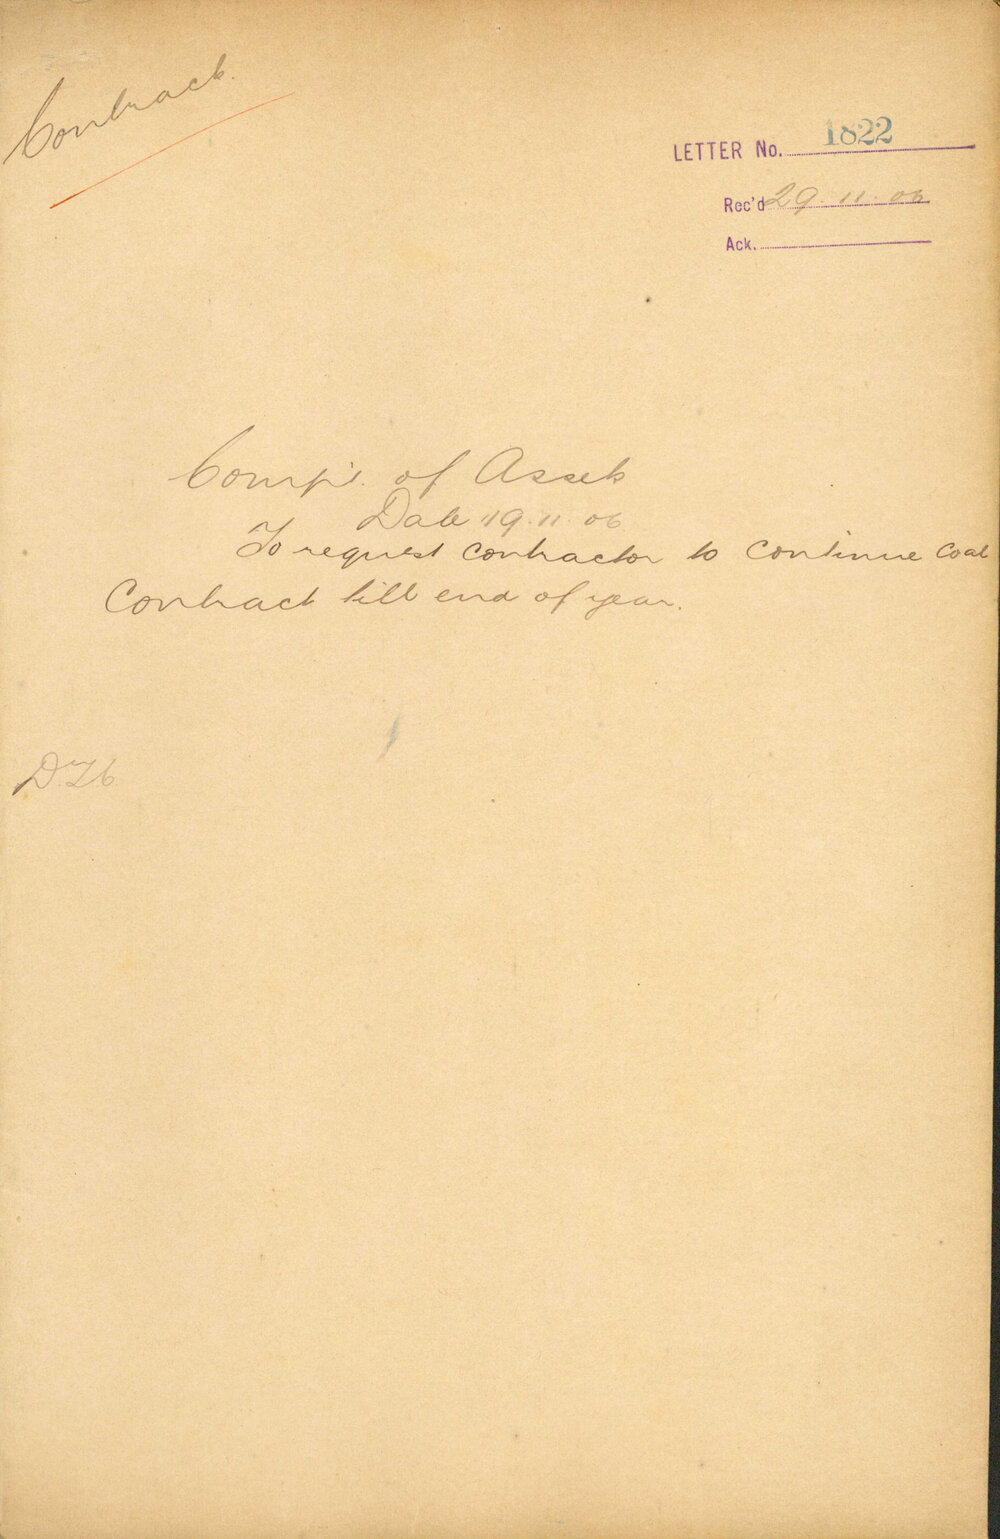 Contract.
LETTER No. 1822
Rec'd 29. 11. 06
Ack.
Comp't. of Assets
Date 19. 11. 06
To request contractor to continue coal
Contract till end of year.